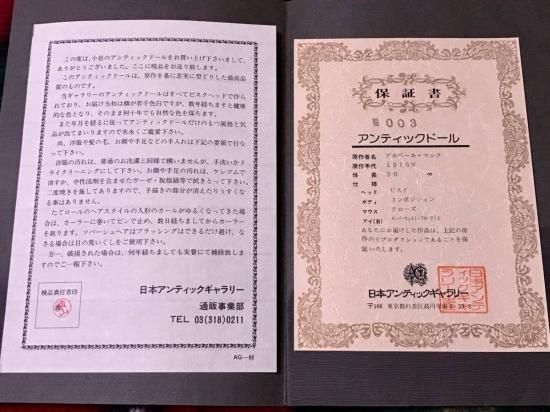 この度は、小社のアンティックドールをお買い上げ下さいまして、
ありがとうございました。ここに現品をお送り致します。
このアンティックドールは、原作を基に忠実に型どりした最高品
質のものです。
当ギャラリーのアンティックドールはすべてビスクヘッドで作ら
れており、お届け当初は顔が若干色白ですが、数年経ちますと健康
的な色となり、そのまま何十年でも自然な色を保ちます。
また年月を経るに従ってアンティックドールだけのもつ風格と気
品が出てまいりますので末永くご愛蔵下さい。
尚、洋服や髪の毛、お顔や手足などの手入れは下記の要領で行な
って下さい。
洋服の汚れは、普通のお洗濯と同様で構いませんが、手洗いかド
ライクリーニングにして下さい。お顔や手足の汚れは、ケシゴムで
消すか、中性洗剤を含ませたガーゼ・脱脂綿等で拭きとって下さい。
二度焼きを施してありますので、手描きの部分が消えたりすくなく
なる事はありません。
たてロールのヘアスタイルの人形のカールがゆるくなってきた場
合は、カーラーに巻いてピンで止め、数日経ちましてからカーラー
を取ります。ソバージュヘアはブラッシングはできるだけ避け、な
さる場合は目の荒いくしをご使用下さい。
万一、破損された場合は、何年経ちましても実費にて補修致しま
すのでご一報下さい。
検品責任者印
日本アンティックギャラリー
通販事業部
TEL 03(318)0211
AG—88
保証書
003
アンティックドール
原作者名 アルベール・マルク
原作年代 1916年
体長 50 cm
仕様
ヘッド ビスク
ボディ コンポジション
マウス クローズ
アイ(目)
あなたにお届けした作品は、上記の原
作のリプロダクションであることを保
証いたします。
日本アンティックギャラリー
〒166 東京都杉並区高円寺南